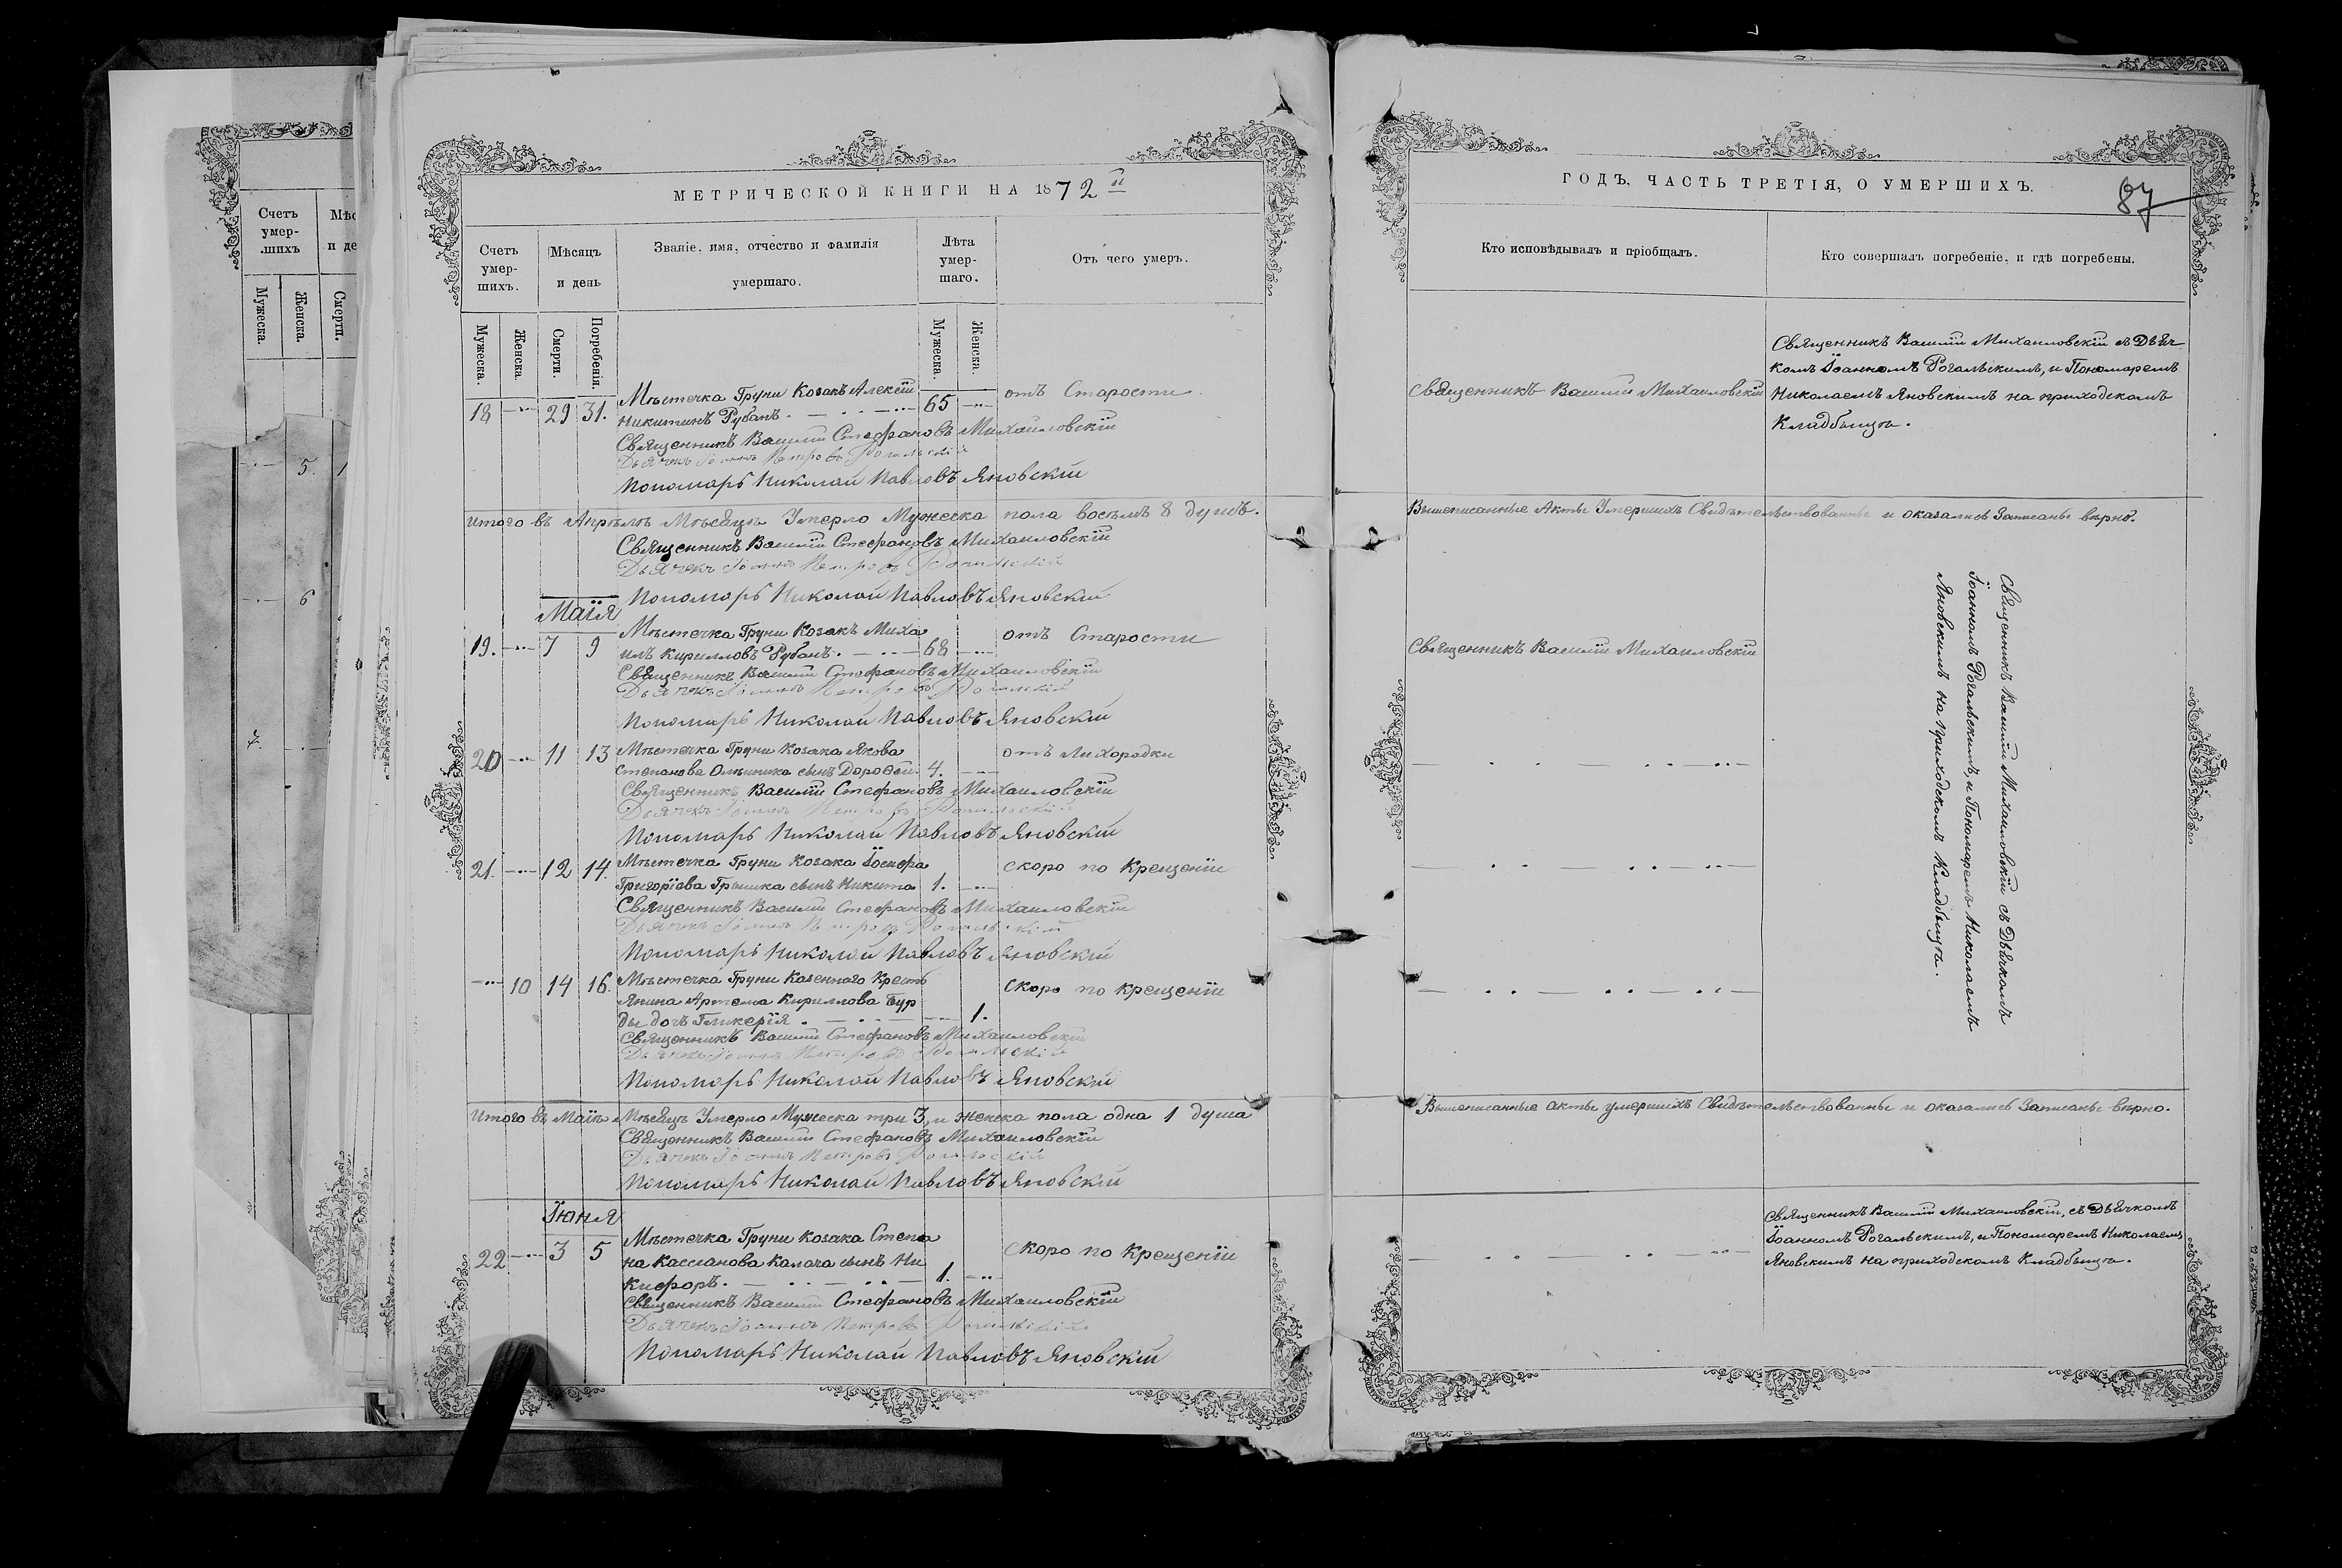 Счетъ
умер-
.шихъ
Мужеска.
Женска.
Смерти.
5.
6
7.
МЕТРИЧЕСКОЙ КНИГИ НА 1872й
Счетъ
умер-
шихъ.
Мѣсяцъ
и день
Званіе, имя, отчество и фамилія
умершаго.
Лѣта
умер-
шаго.
Отъ чего умеръ.
Мужеска.
Женска.
Смерти.
Погребенія.
Мужеска.
Женска.
18 29 31. Мѣстечка Груни Козакъ Алексій
Никитинъ Рубанъ. 65 отъ Старости
Священникъ Василій Стефановъ Михайловскій
Дьячекъ Іоаннъ Петровъ Рогальскій
Пономарь Николай Павловъ Яновскій
Итого въ Апрѣлѣ Мѣсяцѣ Умерло Мужеска пола восемь 8 душъ.
Священникъ Василій Стефановъ Михайловскій
Дьячекъ Іоаннъ Петровъ Рогальскій
Пономарь Николай Павловъ Яновскій
Маія
19. 7 9 Мѣстечка Груни Козакъ Миха
илъ Кирилловъ Рубанъ. 68 отъ Старости
Священникъ Василій Стефановъ Михайловскій
Дьячекъ Іоаннъ Петровъ Рогальскій
Пономарь Николай Павловъ Яновскій
20 11 13 Мѣстечка Груни Козака Якова
Степанова Олѣйника сынъ Дороѳей. 4. отъ Лихорадки
Священникъ Василій Стефановъ Михайловскій
Дьячекъ Іоаннъ Петровъ Рогальскій
Пономарь Николай Павловъ Яновскій
21. 12 14. Мѣстечка Груни Козака Іосифа
Григоріева сынъ Никита 1. скоро по Крещеніи
Священникъ Василій Стефановъ Михайловскій
Дьячекъ Іоаннъ Петровъ Рогальскій
Пономарь Николай Павловъ Яновскій
10 14 16. Мѣстечка Груни Казеннаго Кресть
янина Артема Кирилова Бур
ды дочь Гликерія. 1. Скоро по Крещеніи
Священникъ Василій Стефановъ Михайловскій
Дьячекъ Іоаннъ Петровъ Рогальскій
Пономарь Николай Павловъ Яновскій
Итого въ Маіѣ Мѣсяцѣ Умерло Мужеска три 3, и женска пола одна 1 душа
Священникъ Василій Стефановъ Михайловскій
Дьячекъ Іоаннъ Петровъ Рогальскій
Пономарь Николай Павловъ Яновскій
Іюня
22 3 5 Мѣстечка Груни козака Степа
на Кассіанова Калача сынъ Ни
кифоръ. 1. скоро по Крещеніи
Священникъ Василій Стефановъ Михайловскій
Дьячекъ Іоаннъ Петровъ Рогальскій
Пономарь Николай Павловъ Яновскій
ГОДЪ, ЧАСТЬ ТРЕТІЯ, О УМЕРШИХЪ.
87
Кто исповѣдывалъ и пріобщалъ.
Кто совершалъ погребеніе, и гдѣ погребены.
Священникъ Василій Михайловскій
Священникъ Василій Михайловскій съ Дьяч
комъ Іоанномъ Рогальскимъ, и Пономаремъ
Николаемъ Яновскимъ на приходскомъ
Кладбищѣ.
Вышеписанные Акты Умершихъ Свидѣтельствованы и оказались Записаны вѣрно.
Священникъ Василій Михайловскій
Священникъ Василій Михайловскій съ Дьячкомъ
Іоанномъ Рогальскимъ, и Пономаремъ Николаемъ
Яновскимъ на приходскомъ Кладбищѣ.
Вышеписанные акты умершихъ Свидѣтельствованы и оказались Записаны вѣрно.
Священникъ Василій Михайловскій, съ Дьячкомъ
Іоанномъ Рогальскимъ, и Пономаремъ Николаемъ
Яновскимъ на приходскомъ Кладбищѣ.